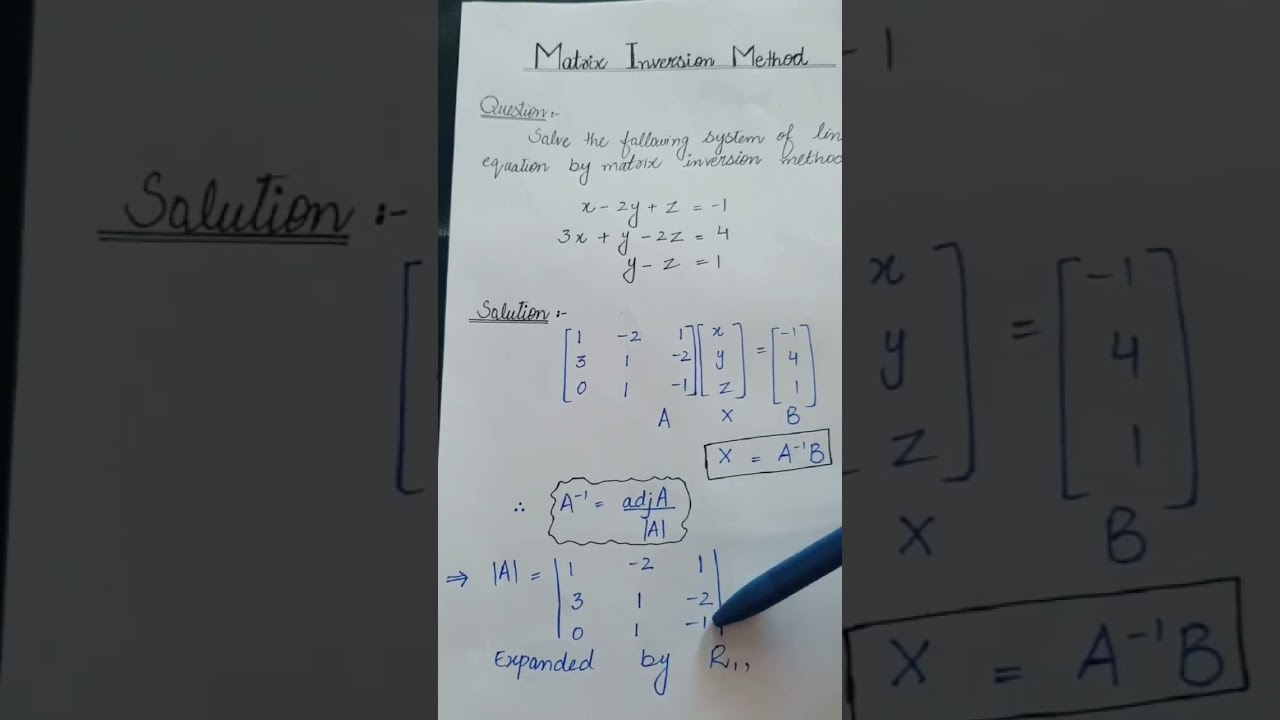 Matrix Inversion Method
Question:-
Salve the fallowing system of lin
equation by matrix inversion method
x - 2y + z = -1
3x + y - 2z = 4
y - z = 1
Salution:-
[1 -2 1] [x] = [-1]
[3 1 -2] [y] [4]
[0 1 -1] [z] [1]
A X B
X = A⁻¹B
∴ A⁻¹ = adjA / |A|
⇒ |A| = |1 -2 1|
|3 1 -2|
|0 1 -1|
Expanded by R₁,,
-1
Salution:-
x
y = -1
z 4
1
X B
X = A⁻¹B